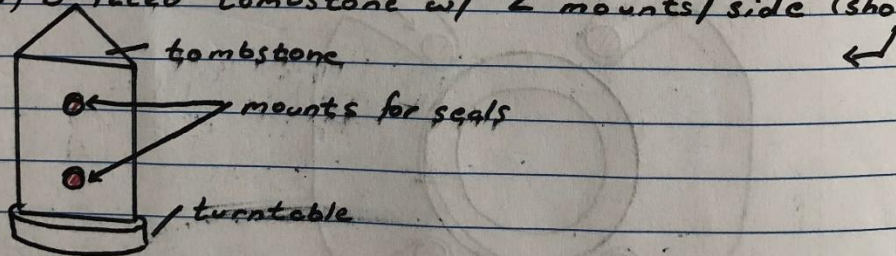 tombstone w/ 2 mounts/side (sho
tombstone
mounts for seals
turntable